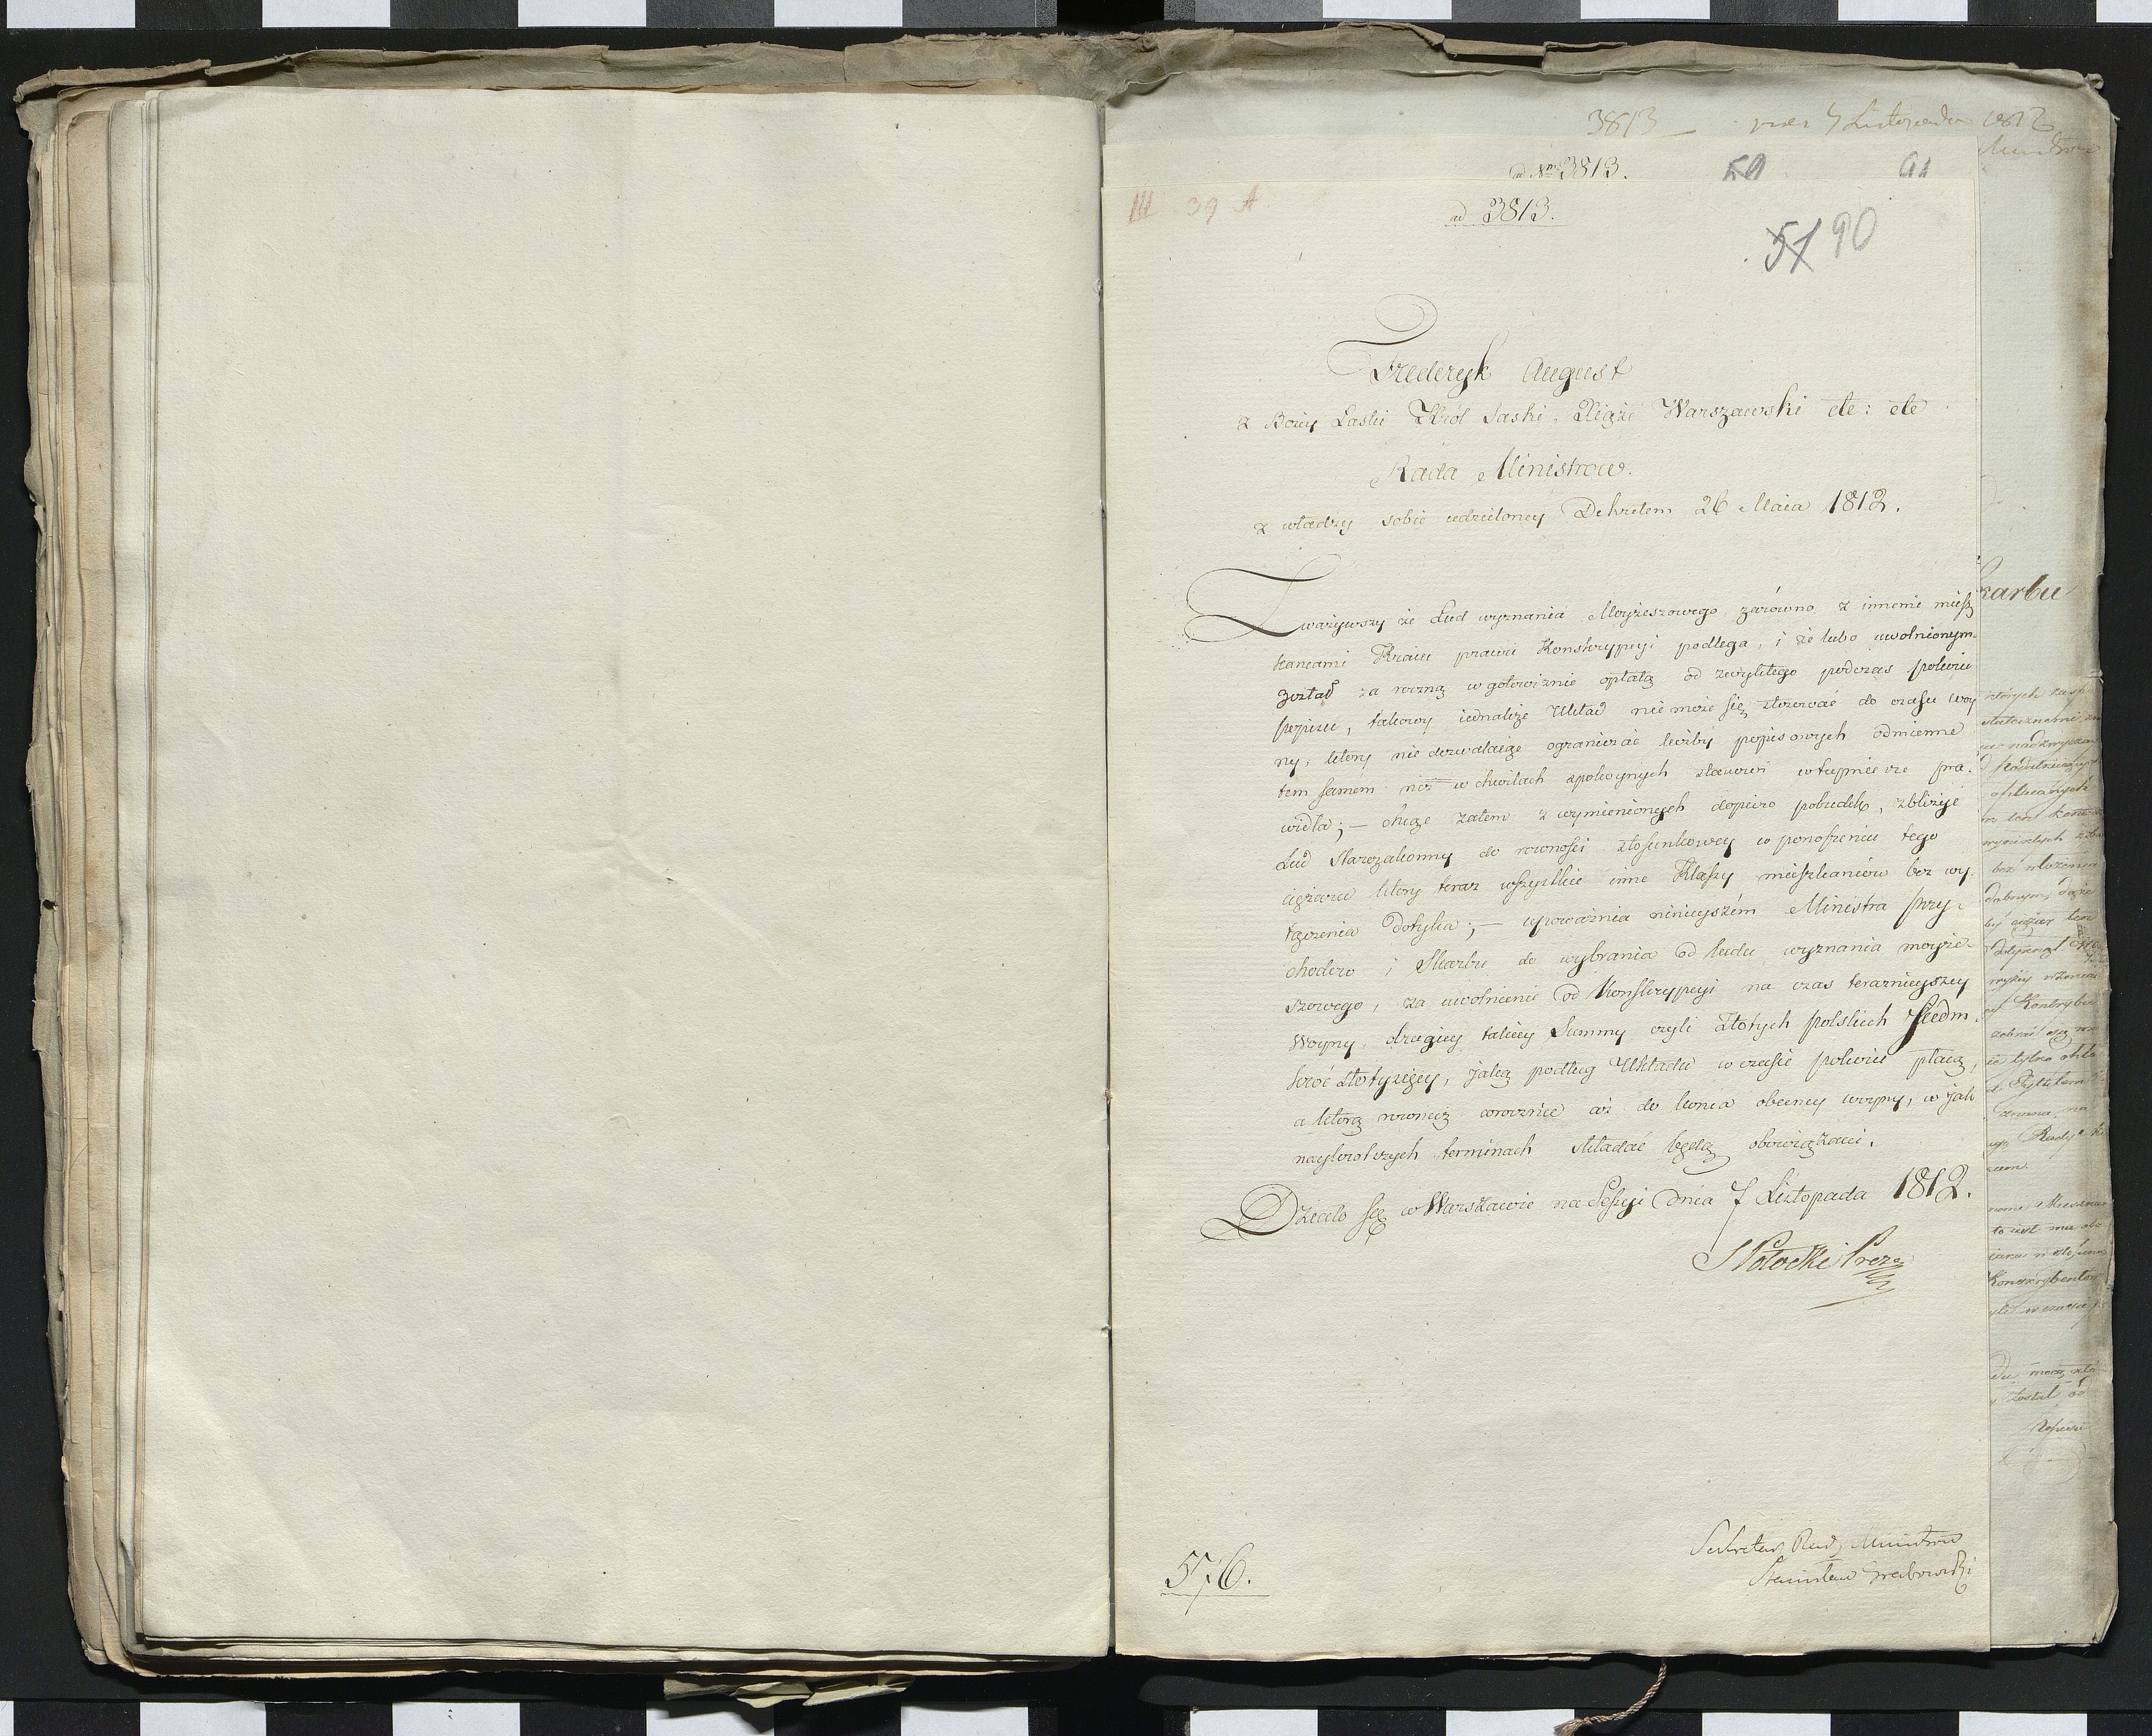 3813 — 7 Listopada 1812
ad Nm 3813. 59 91
III 39 A.
ad 3813.
57 90
Frederyk August
z Bożey Łaski Król Saski, Xiąże Warszawski etc: etc
Rada Ministrow.
z władzy sobie udzieloney Dekretem 26 Maia 1812.
Zważywszy że Lud wyznania Moyżeszowego zarówno z innemi miesz
kancami Kraiu prawu Konskrypcyi podlega, i że lubo uwolnionym
został za roczną w gotowiźnie opłatą od zwykłego podczas pokoiu
popisu, takowy iednakże Układ nie może się stosować do czasu woy
ny, ktory nie dozwalaiąc ograniczać liczby popisowych odmienne
tem samem niż w chwilach spokoynych stanowi w tey mierze pra-
widła; — chcąc zatem z wymienionych dopiero pobudek, zbliżyć
Lud Starozakonny do rowności stosunkowey w ponoszeniu tego
ciężaru ktory teraz wszystkie inne Klassy mieszkańców bez wy
łączenia dotyka; — upoważnia ninieyszém Ministra Przy-
chodow i Skarbu do wybrania od ludu wyznania moyże-
szowego, za uwolnienie od Konskrypcyi na czas teraznieyszey
Woyny drugiey takiey Summy czyli Złotych polskich Siedm-
kroć Stotysięcy, jaką podług Układu w czasie pokoiu płacą,
a ktorą rownież corocznie aż do konca obecney woyny, w jak
naykrotszych terminach składać będą obowiązani.
Działo się w Warszawie na Sessyi dnia 7 Listopada 1812.
S Potocki Prez
Sekretarz Rady Ministrow
Stanisław Grabowski
576.
karbu
których
nadzwyczay
opłacanych
bez włożenia
by ciężar ten
Kontrybu
ie tylko opła
Rady
to iest ma obo
Konskrybentow
został od